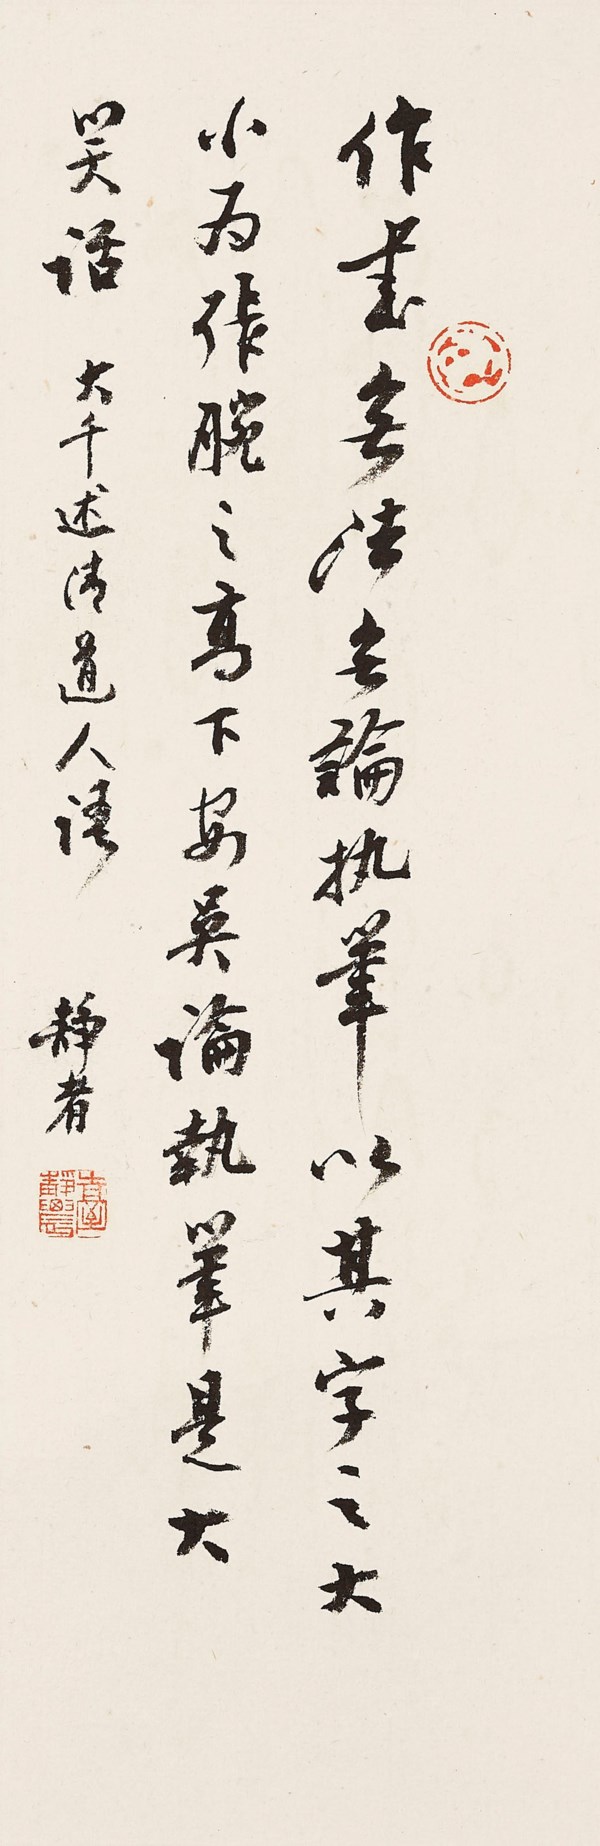 作書無法無論執筆以其字之大
小為張腕之高下安吳論執筆是大
笑話 大千述清道人語 靜者